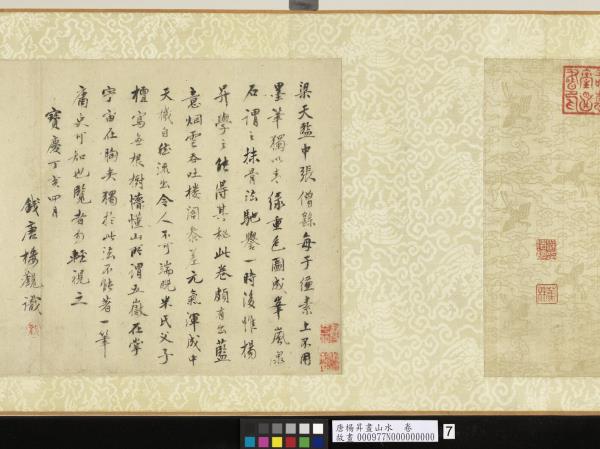 梁天監中張僧繇每于縑素上不用
墨筆獨以青綠重色圖成峯嵐泉
石謂之抹骨法馳譽一時後惟楊
昇學之能得其秘此卷頗有出藍
意烟雲吞吐樓閣參差元氣渾成中
天機自然流出令人不可端倪米氏父子
擅寫無根樹懞懂山所謂五嶽在掌
宇宙在胸矣獨於此法不能著一筆
庸史可知也覽者勿輕視之
寶慶丁亥四月
錢唐楊觀識
唐楊昇畫山水 卷
故畫 000977N000000000
7